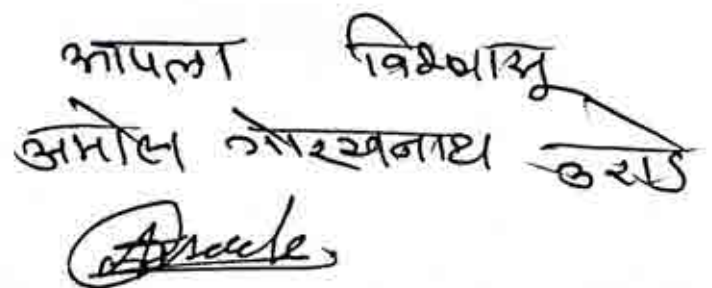 आपला विश्वासू
अमोल गोरखनाथ